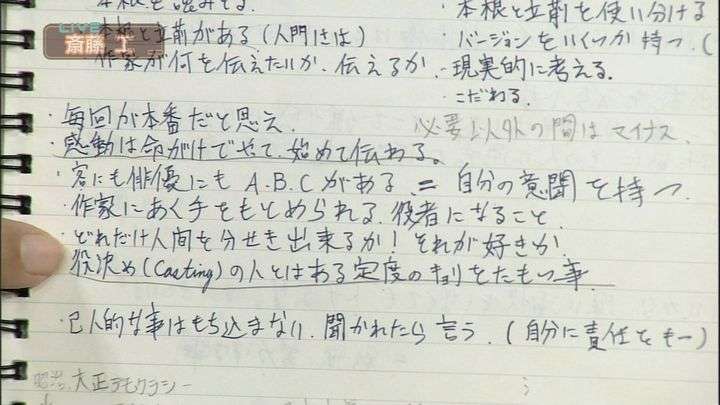 本根を読みとる。
・本根と立前がある(人間には)
作家が何を伝えたいか、伝えるか
・本根と立前を使い分ける
・バージョンをいくつか持つ。(
・現実的に考える。
・こだわる。
LIVE
斎藤 工
・毎回が本番だと思え。
必要以外の間はマイナス。
・感動は命がけでやって、始めて伝わる。
・客にも俳優にも A.B.Cがある = 自分の意図を持つ
・作家にあく手をもとめられる。役者になること。
・どれだけ人間を分せき出来るか!それが好きか
・役決め(Casting)の人とはある定度のキョリをたもつ事
・己人的な事はもち込まない、聞かれたら言う。(自分に責任をもつ)
昭治、大正デモクラシー